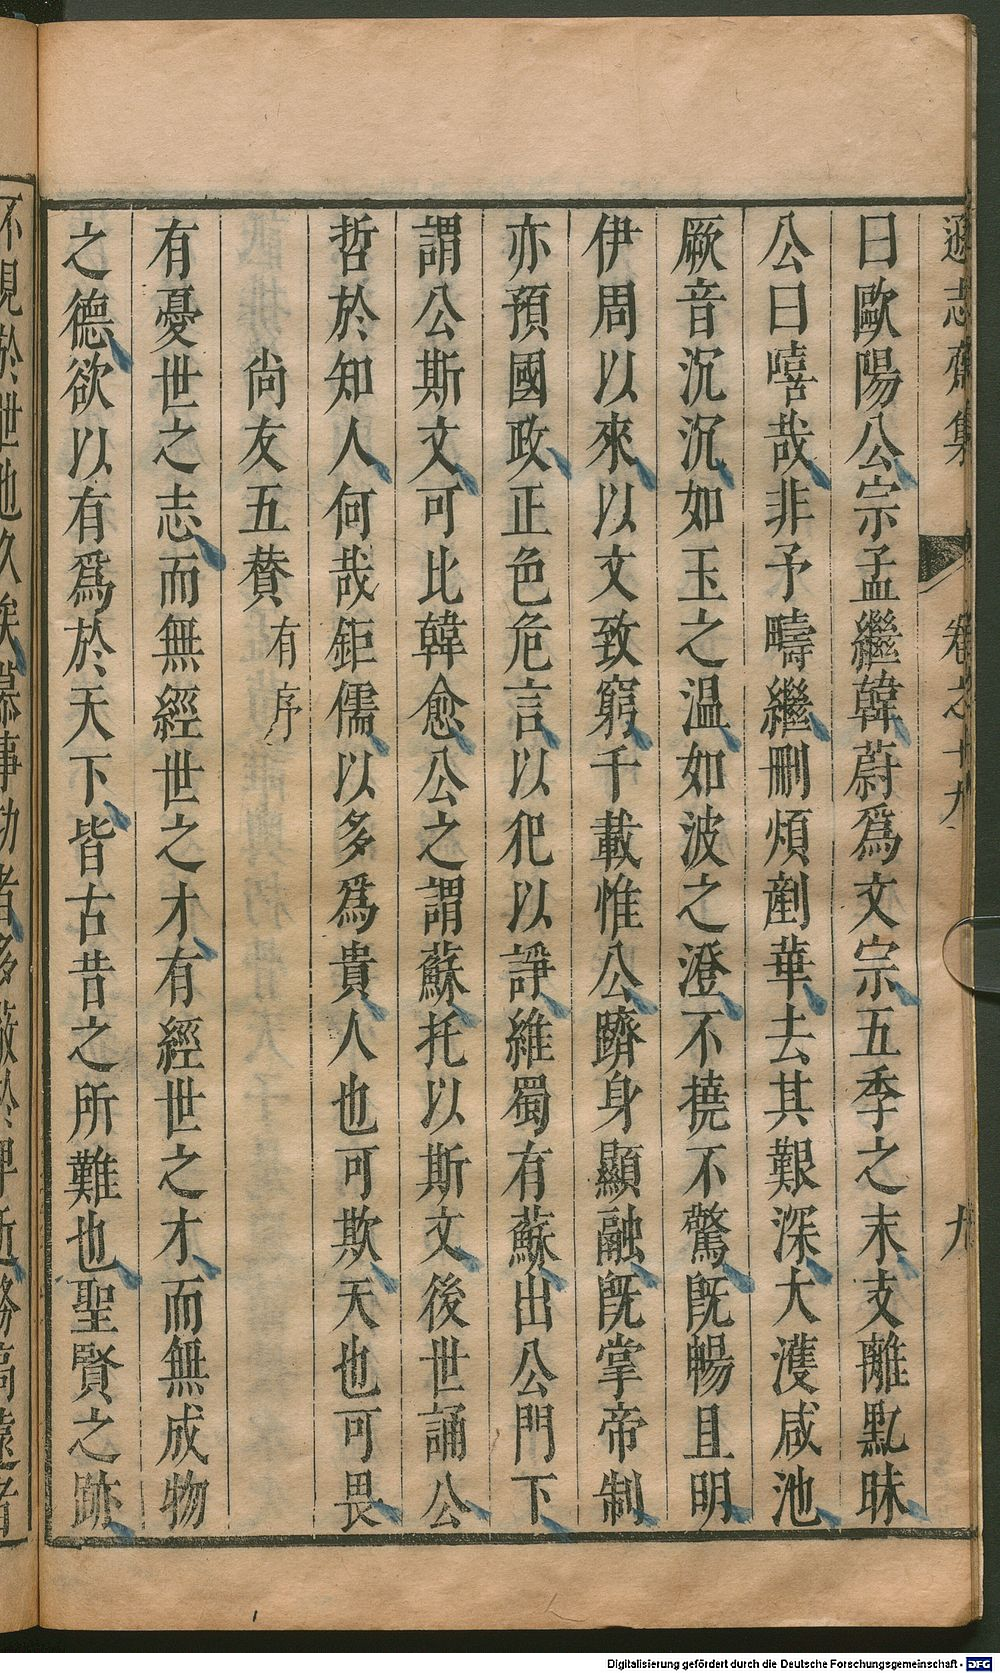 遜志齋集 卷之十九 九
曰歐陽公宗孟繼韓蔚爲文宗五季之末支離黓昧
公曰嘻哉非予疇繼刪煩剷華去其艱深大濩咸池
厥音沉沉如玉之温如波之澄不撓不驚旣暢且明
伊周以來以文致窮千載惟公躋身顯融旣掌帝制
亦預國政正色危言以犯以諍維蜀有蘇出公門下
謂公斯文可比韓愈公之謂蘇托以斯文後世誦公
哲於知人何哉鉅儒以多爲貴人也可欺天也可畏
尚友五賛有序
有憂世之志而無經世之才有經世之才而無成物
之德欲以有爲於天下皆古昔之所難也聖賢之跡
不見於世也久矣慕事功者多
Digitalisierung gefördert durch die Deutsche Forschungsgemeinschaft - DFG